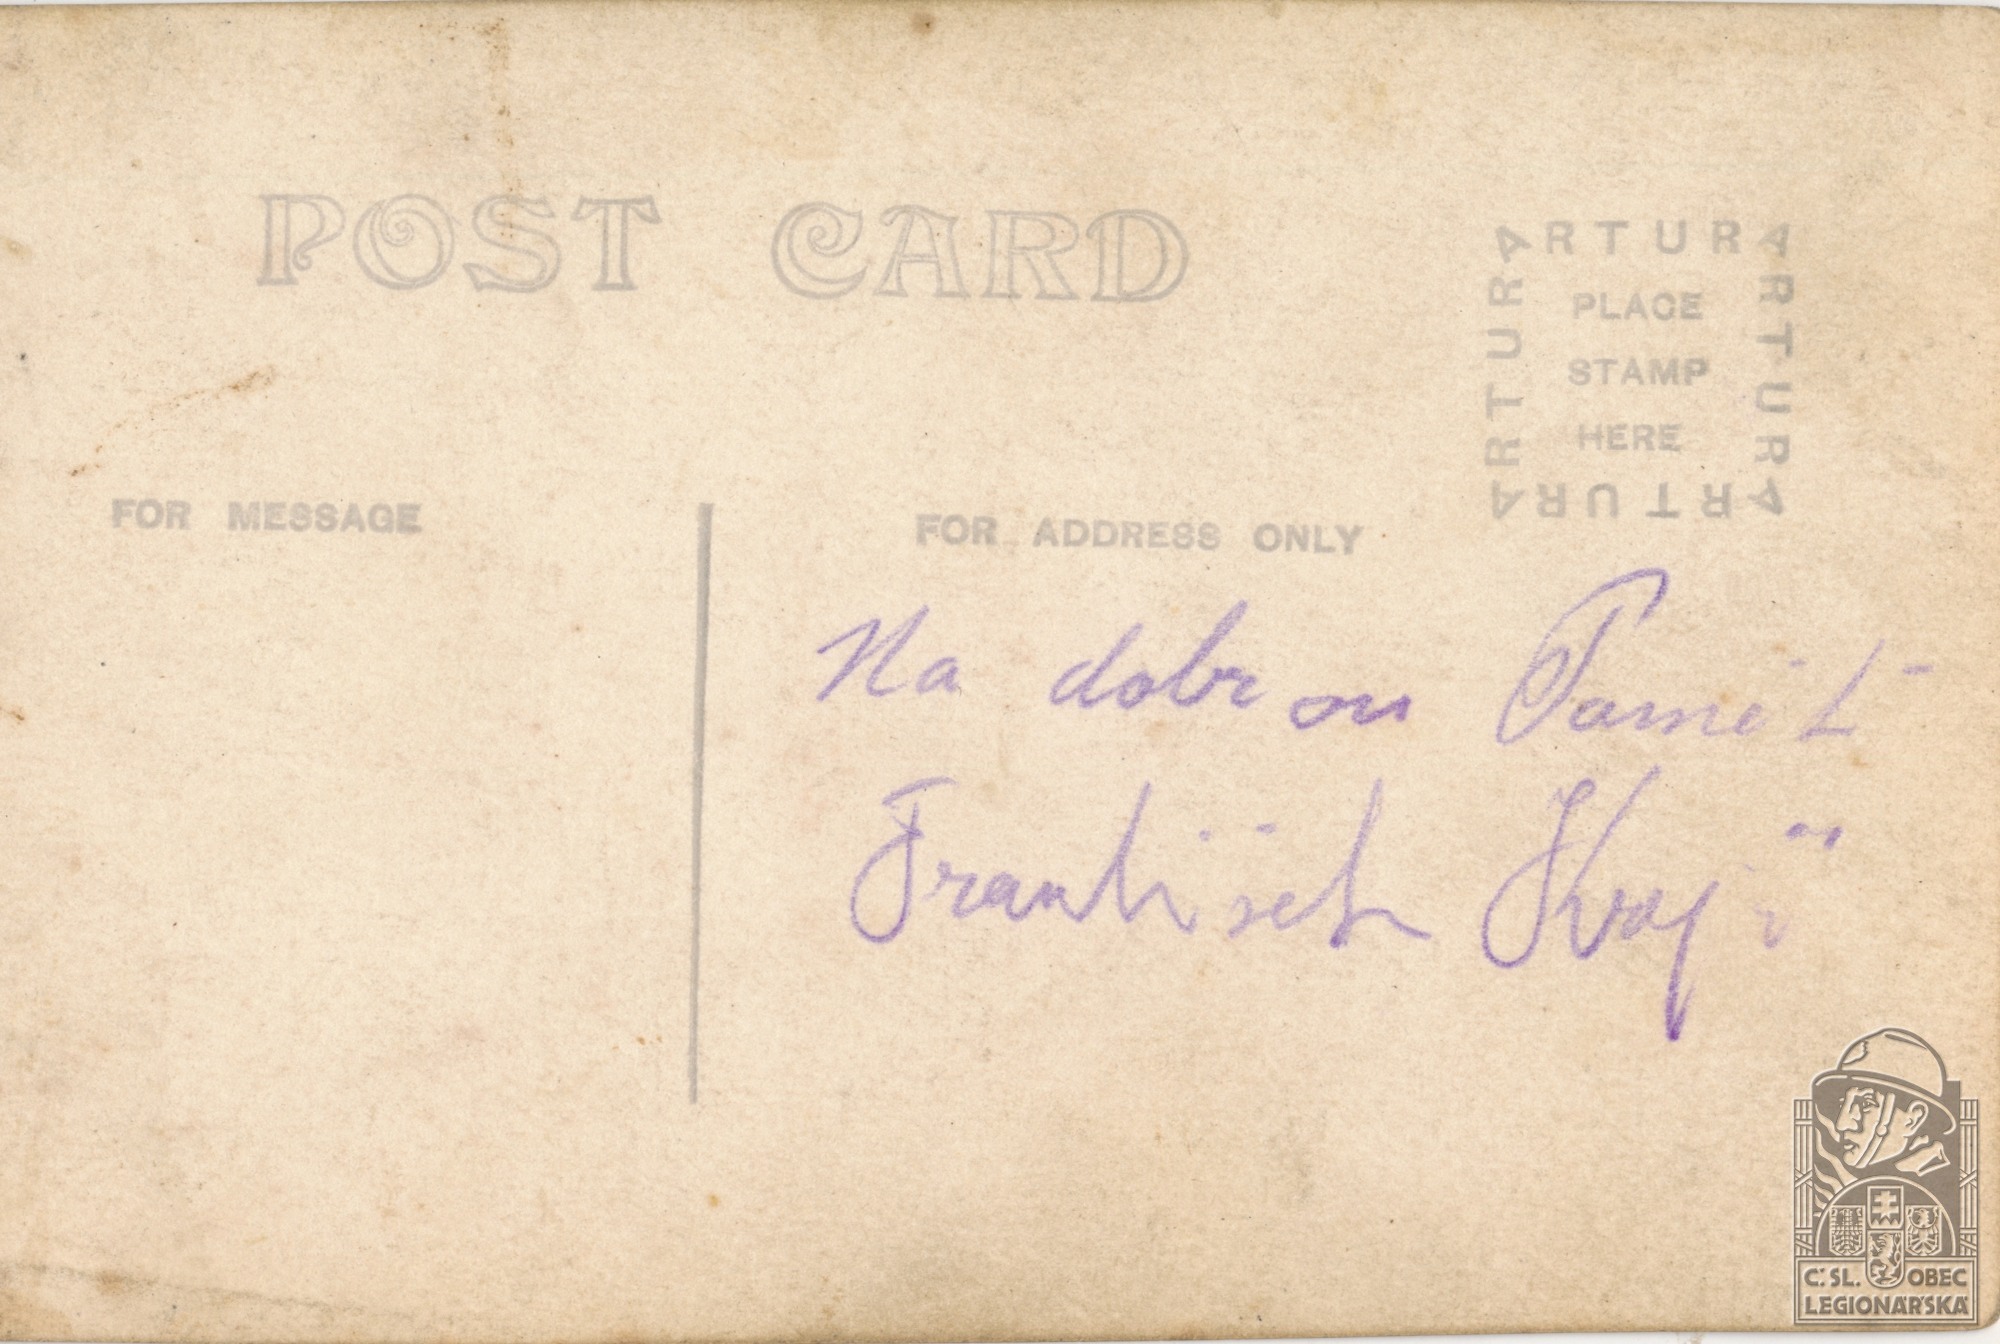 POST CARD
ARTURA
ARTURA
ARTURA
ARTURA
PLACE
STAMP
HERE
FOR MESSAGE
FOR ADDRESS ONLY
Na dobrou Pamět
František
C.SL. OBEC
LEGIONÁŘSKÁ